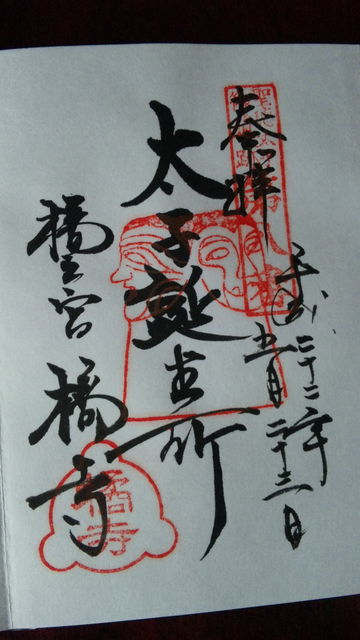 奉拝
平成二十二年
五月二十三日
太子誕生所
橘之宮
橘寺
橘寺